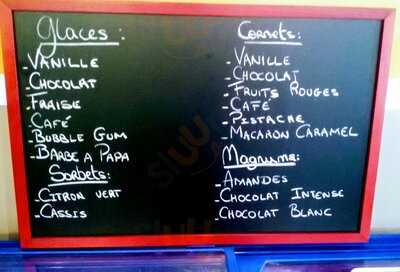 Glaces:
-Vanille
-Chocolat
-Fraise
-Café
-Bubble Gum
-Barbe a Papa
Sorbets:
-Citron vert
-Cassis
Cornets:
-Vanille
-Chocolat
-Fruits Rouges
-Café
-Pistache
-Macaron Caramel
Magnums:
-Amandes
-Chocolat Intense
-Chocolat Blanc